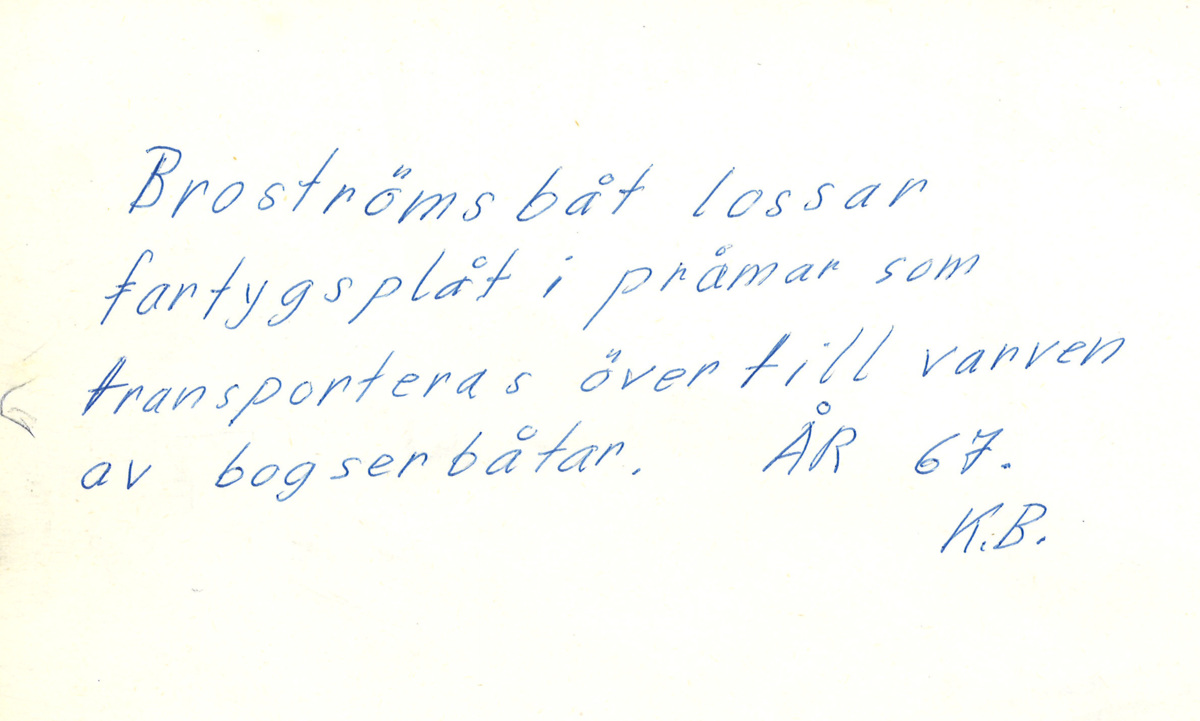 Broströms båt lossar
fartygsplåt i pråmar som
transporteras över till varven
av bogserbåtar. ÅR 67.
K.B.